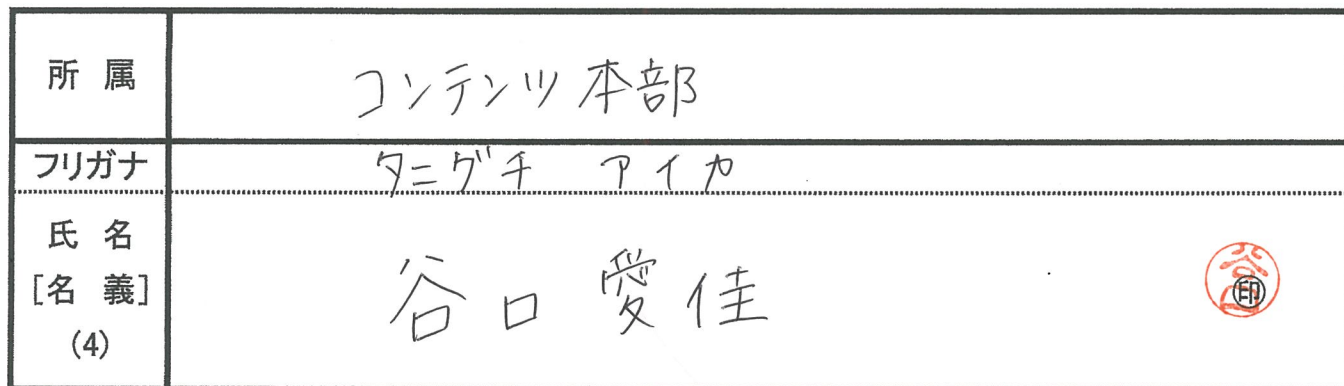 所属 コンテンツ本部
フリガナ タニグチ アイカ
氏名
[名義] 谷口愛佳 谷口 ㊞
(4)